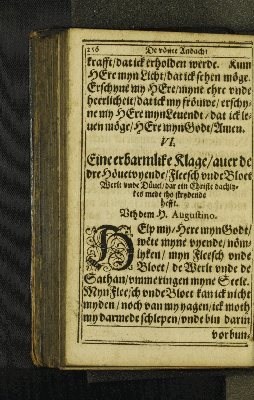 256 De vöffte Andacht
krafft/dat ick erholden werde. Kum
HEre myn Licht/dat ick sehen möge.
Erschyne my HEre/myne ehre vnde
heerlicheit/dat ick my fröuwe/erschy-
ne my HEre myn Leuendt/dat ick le-
uen möge/HEre myn Godt/Amen.
VI.
Eine erbarmlike Klage/auer de
dre Höuetvyende/Fleesch vnde Bloet
Werlt vnde Düuel/dar ein Christe dachly-
kes mede tho strydende
hefft.
Vth dem H. Augustino.
HElp my/Here myn Godt/
wete myne vyende/nöm-
lyken/myn Fleesch vnde
Bloet/de Werlt vnde de
Sathan/vmmeringen myne Seele.
Myn Fleesch vnde Bloet kan ick nicht
myden/noch van my yagen/ick moth
my darmede schlepen/vnde bin darin
vorbun-